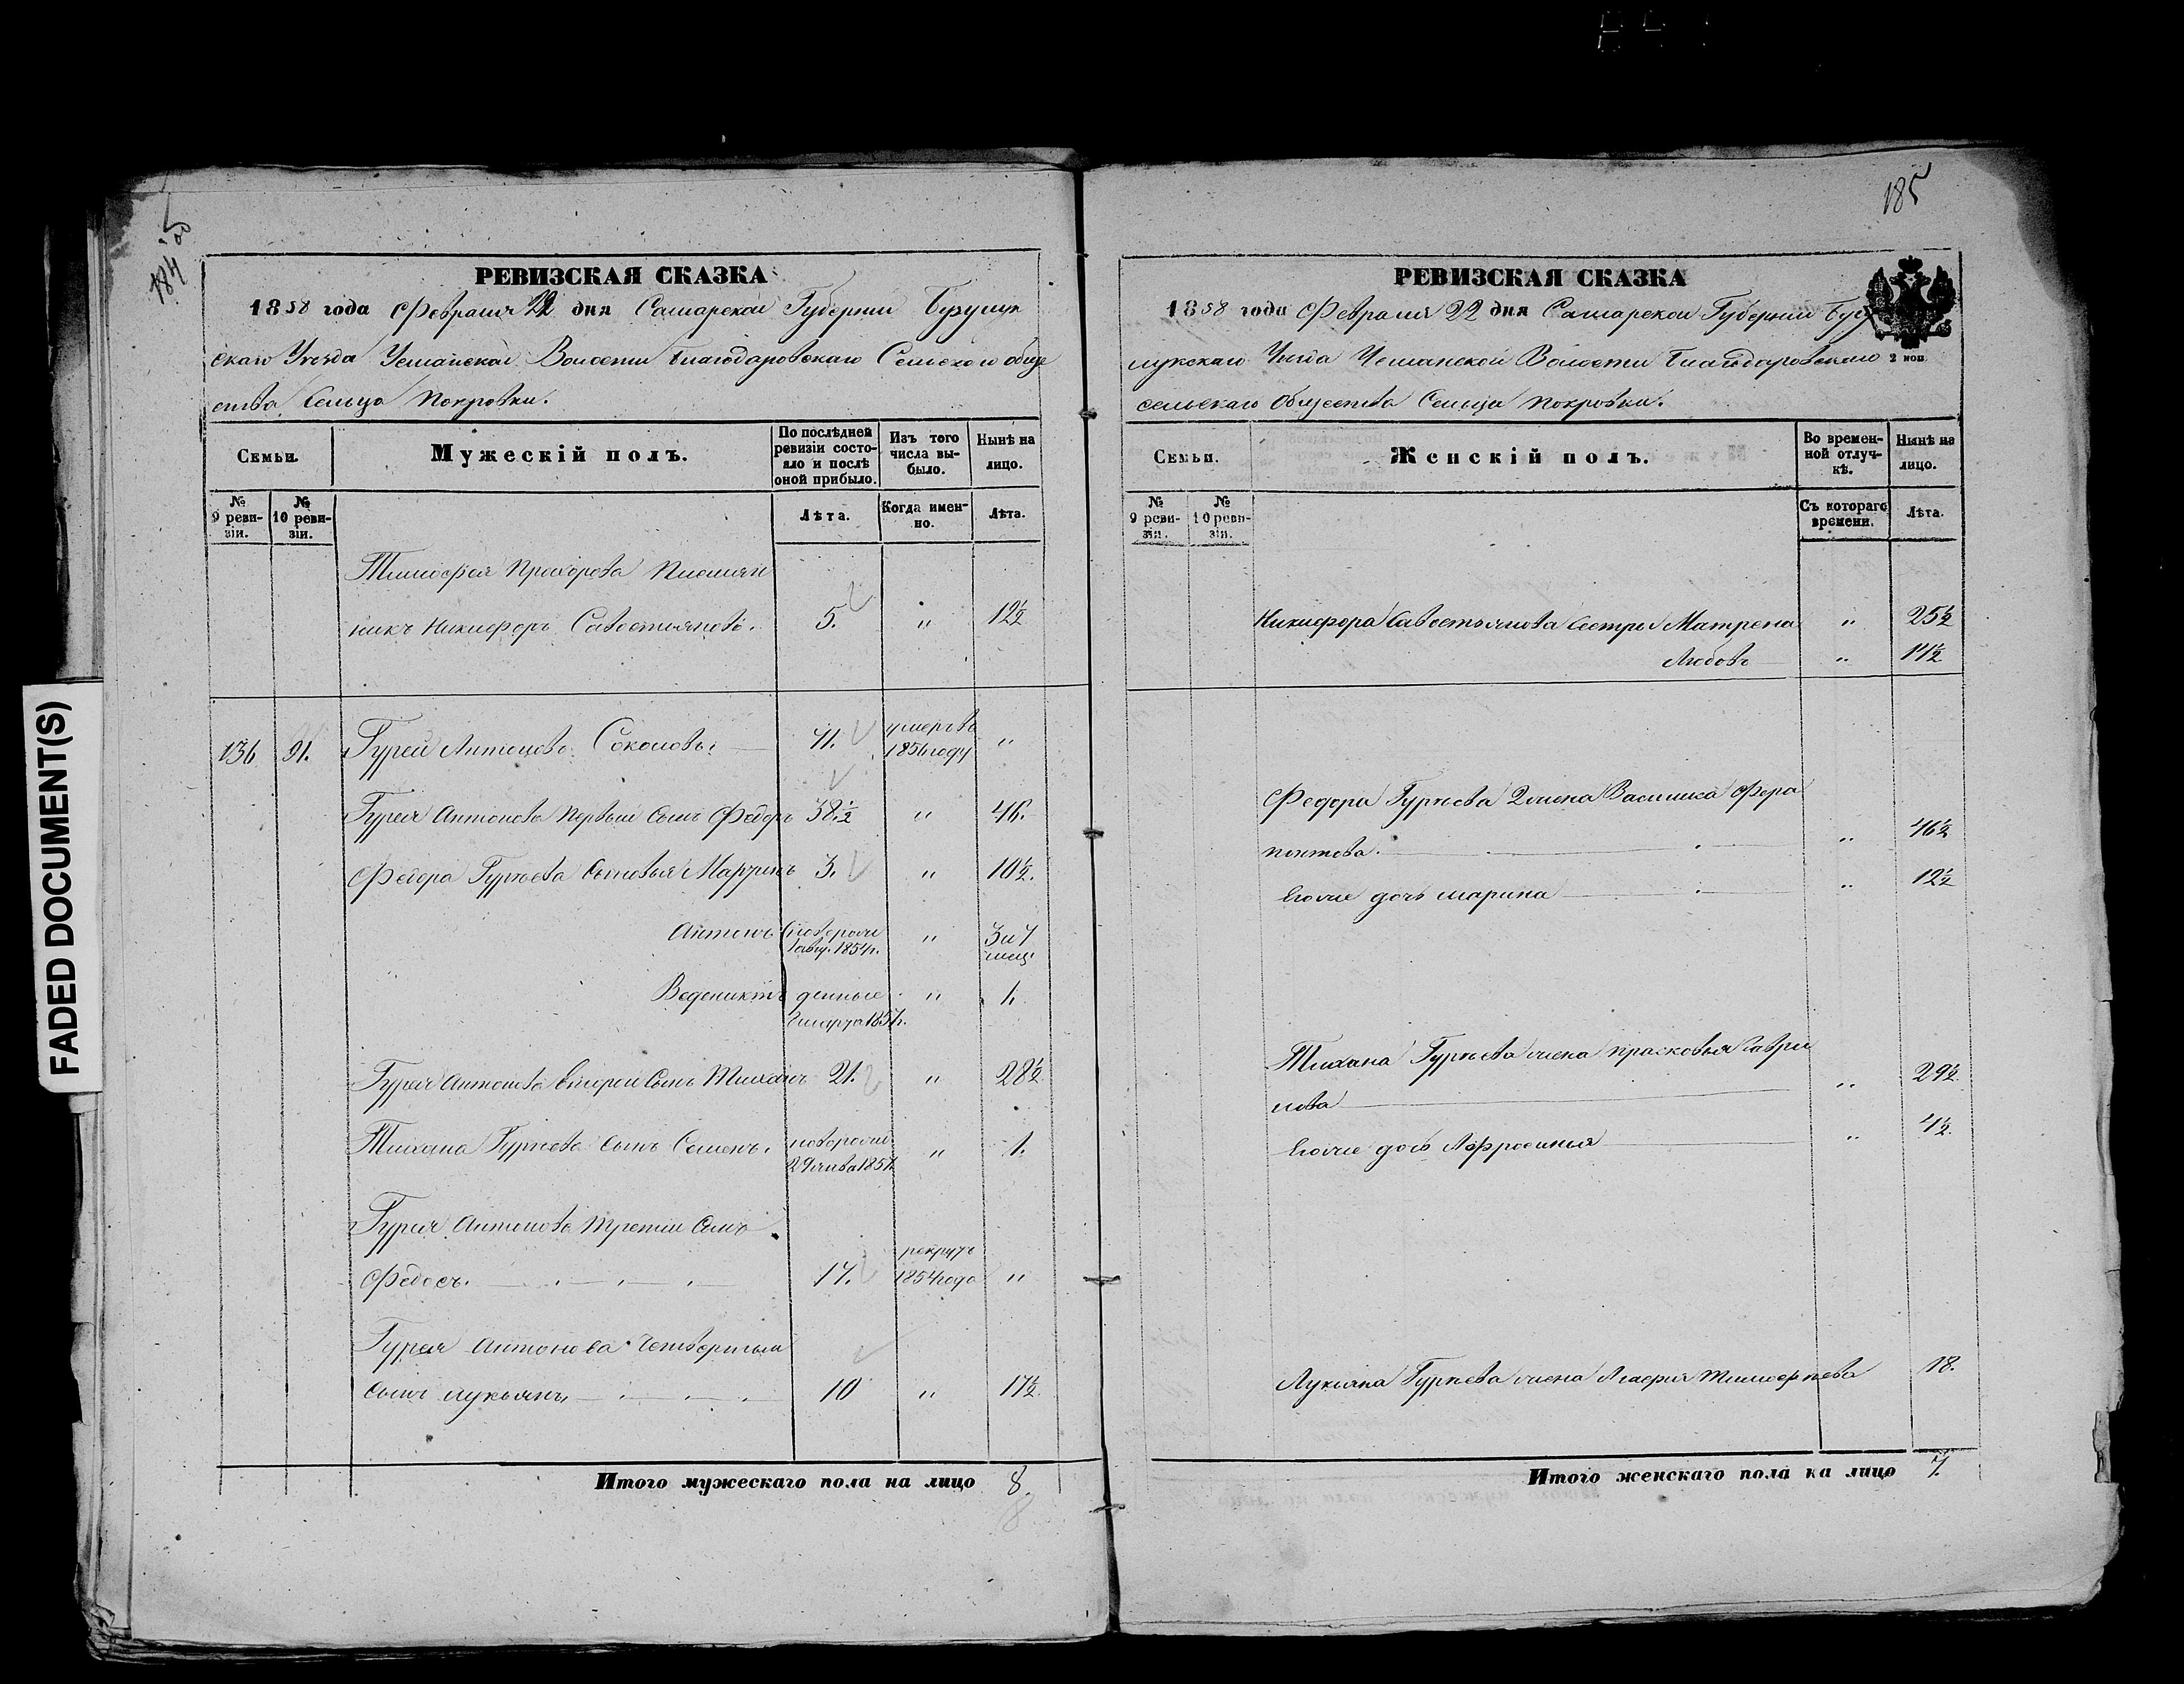 FADED DOCUMENT(S)
184
РЕВИЗСКАЯ СКАЗКА
1858 года Февраля 22 дня Самарской Губернии Бузулук
скаго Уезда Усманской Волости Благодаровскаго Сельскаго обще
ства Сельца Покровки.
Семьи.
Мужескій полъ.
По послѣдней ревизіи состояло и послѣ оной прибыло.
Изъ того числа выбыло.
Нынѣ на лицо.
№ 9 ревизіи.
№ 10 ревизіи.
Лѣта.
Когда именно.
Лѣта.
Тимофея Прохорова Племян
никъ Никифоръ Савостьяновъ. 5. " 12½
136 91. Гурей Антоновъ Соколовъ. 71. умеръ въ 1856 году "
Гурея Антонова первый Сынъ Федоръ 38½ " 46.
Федора Гурьева Сыновья Марчинъ 3. " 10½.
Антонъ новорожденные 1854 г. " 3 и 7 мец.
Веденихтъ марта 1857 г. " 1.
Гурея Антонова вторый Сынъ Тиханъ 21. " 28½
Тихана Гурьева Сынъ Семенъ. новорожд 29 1857 " 1.
Гурея Антонова Третий Сынъ
Федосъ. 17. рекрутъ 1854 года "
Гурея Антонова Четвертый
Сынъ Лукьянъ, 10 " 17½
Итого мужескаго пола на лицо 8.
8
185
РЕВИЗСКАЯ СКАЗКА
1858 года Февраля 22 дня Самарской Губернии Бузу
лукскаго Уезда Усманской Волости Благодаровскаго
сельскаго Общества Сельца Покровки.
2 коп.
Семьи.
Женскій полъ.
Во временной отлучкѣ.
Нынѣ на лицо.
№ 9 ревизіи.
№ 10 ревизіи.
Съ котораго времени.
Лѣта.
Никифора Савостьянова Сестры Матрена " 25½
Любовь " 11½
Федора Гурьева 2 жена Василиса Фера
понтова. " 46½
Ево же дочь Марина " 12½
Тихана Гурьева жена Прасковья Гаври
лова " 29½
Ево же дочь Афросинья " 4½.
Лукьяна Гурьева жена Агафия Тимофеева 18.
Итого женскаго пола на лицо 7.